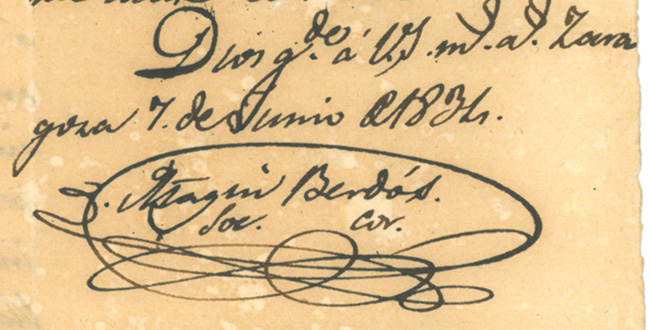 Dios g.de á V.S. m.s a.s Zara
goza 7. de Junio de 1834.
Magin Berdós.
Soc. cor.